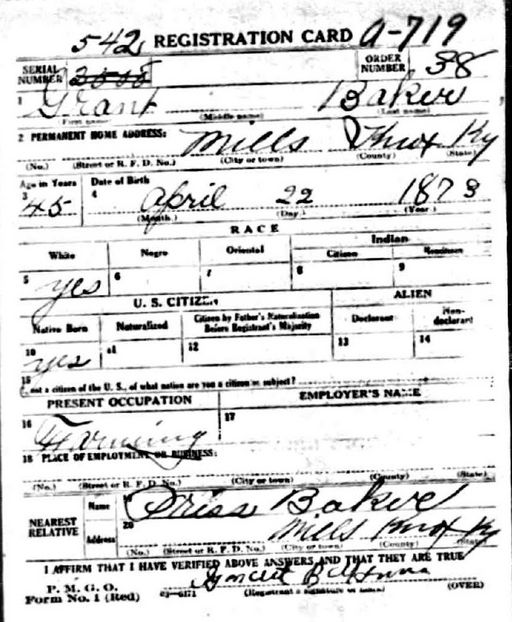 542 REGISTRATION CARD A-719
SERIAL NUMBER ORDER NUMBER 38
1 Grant Baker
(First name) (Middle name) (Last name)
2 PERMANENT HOME ADDRESS: Mills Knox Ky
(No.) (Street or R. F. D. No.) (City or town) (County) (State)
Age in Years Date of Birth
3 45 4 April 22 1873
(Month.) (Day.) (Year.)
RACE
White Negro Oriental Indian
Citizen Noncitizen
5 yes 6 7 8 9
U. S. CITIZEN ALIEN
Native Born Naturalized Citizen by Father's Naturalization Before Registrant's Majority Declarant Non-declarant
10 yes 11 12 13 14
15 If not a citizen of the U. S., of what nation are you a citizen or subject?
PRESENT OCCUPATION EMPLOYER'S NAME
16 Farming 17
18 PLACE OF EMPLOYMENT OR BUSINESS:
(No.) (Street or R. F. D. No.) (City or town) (County) (State)
NEAREST RELATIVE Name 19 Baker
Address 20 Mills Knox Ky
(No.) (Street or R. F. D. No.) (City or town) (County) (State)
I AFFIRM THAT I HAVE VERIFIED ABOVE ANSWERS AND THAT THEY ARE TRUE
P. M. G. O.
Form No. 1 (Red) 03-6171 (Registrant's signature or mark) (OVER)